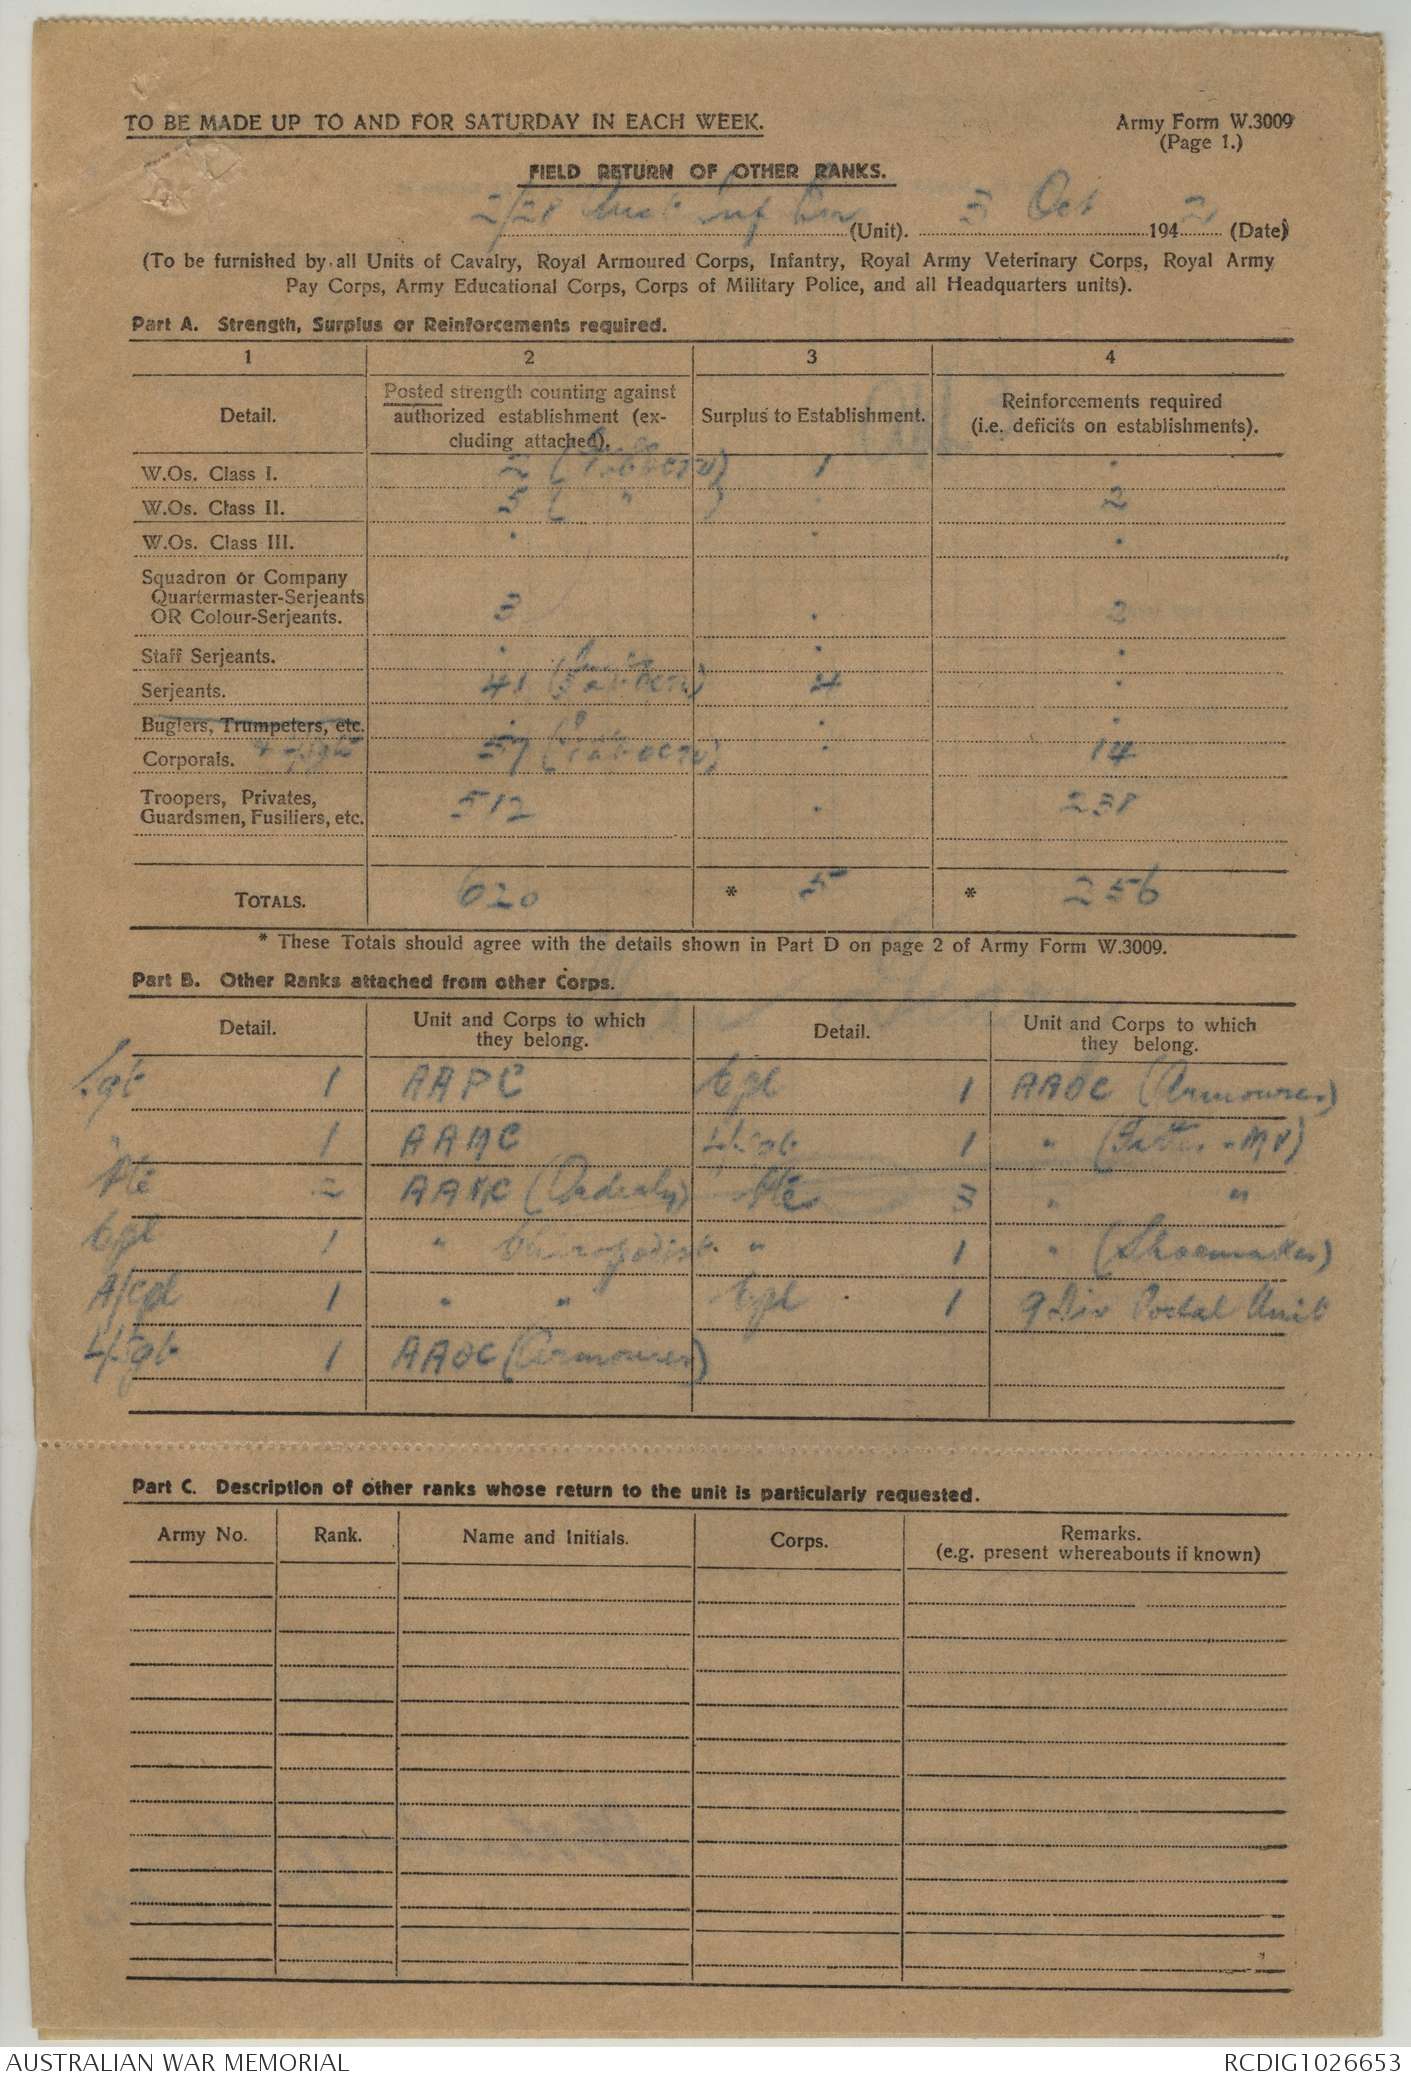 TO BE MADE UP TO AND FOR SATURDAY IN EACH WEEK.
Army Form W.3009
(Page 1.)
FIELD RETURN OF OTHER RANKS.
2/28 Aust Inf Bn (Unit). 3 Oct 1942 (Date)
(To be furnished by all Units of Cavalry, Royal Armoured Corps, Infantry, Royal Army Veterinary Corps, Royal Army
Pay Corps, Army Educational Corps, Corps of Military Police, and all Headquarters units).
Part A. Strength, Surplus or Reinforcements required.
1 2 3 4
Detail.
Posted strength counting against
authorized establishment (ex-
cluding attached).
Surplus to Establishment.
Reinforcements required
(i.e. deficits on establishments).
W.Os. Class I. 2 1 .
W.Os. Class II. 5 ( " ) . 2
W.Os. Class III. . . .
Squadron or Company
Quartermaster-Serjeants
OR Colour-Serjeants. 3 . 2
Staff Serjeants. . . .
Serjeants. 41 4 .
Buglers, Trumpeters, etc. . . .
Corporals. 57 . 14
Troopers, Privates,
Guardsmen, Fusiliers, etc. 512 . 238
TOTALS. 620 * 5 * 256
* These Totals should agree with the details shown in Part D on page 2 of Army Form W.3009.
Part B. Other Ranks attached from other Corps.
Detail.
Unit and Corps to which
they belong.
Detail.
Unit and Corps to which
they belong.
Sgt 1 AAPC Cpl 1 AAOC (Armourer)
" 1 AAMC L/Sgt 1 " (Fitter - MV)
Pte 2 AAMC (Orderly) Pte 3 " "
Cpl 1 " Chiropodist " 1 " (Shoemaker)
A/Cpl 1 " " Cpl 1 9 Div Postal Unit
L/Sgt 1 AAOC (Armourer)
Part C. Description of other ranks whose return to the unit is particularly requested.
Army No. Rank. Name and Initials. Corps.
Remarks.
(e.g. present whereabouts if known)
AUSTRALIAN WAR MEMORIAL
RCDIG1026653